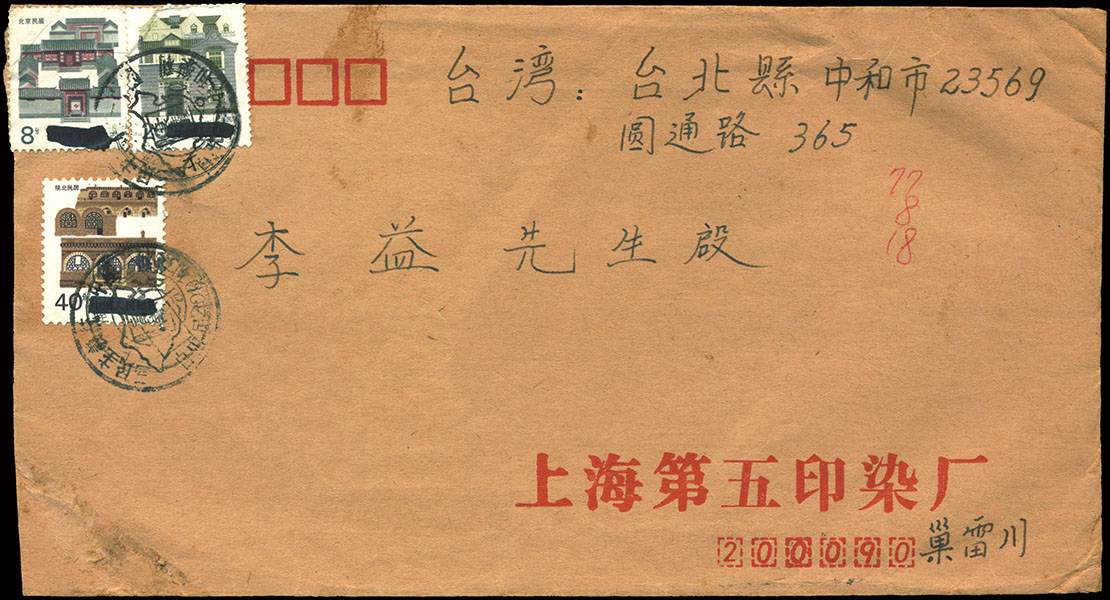 北京民居
8分
台湾：台北縣中和市23569
圆通路 365
陕北民居
40分
77
8
18
李益先生啟
上海第五印染厂
200090 巢雷川